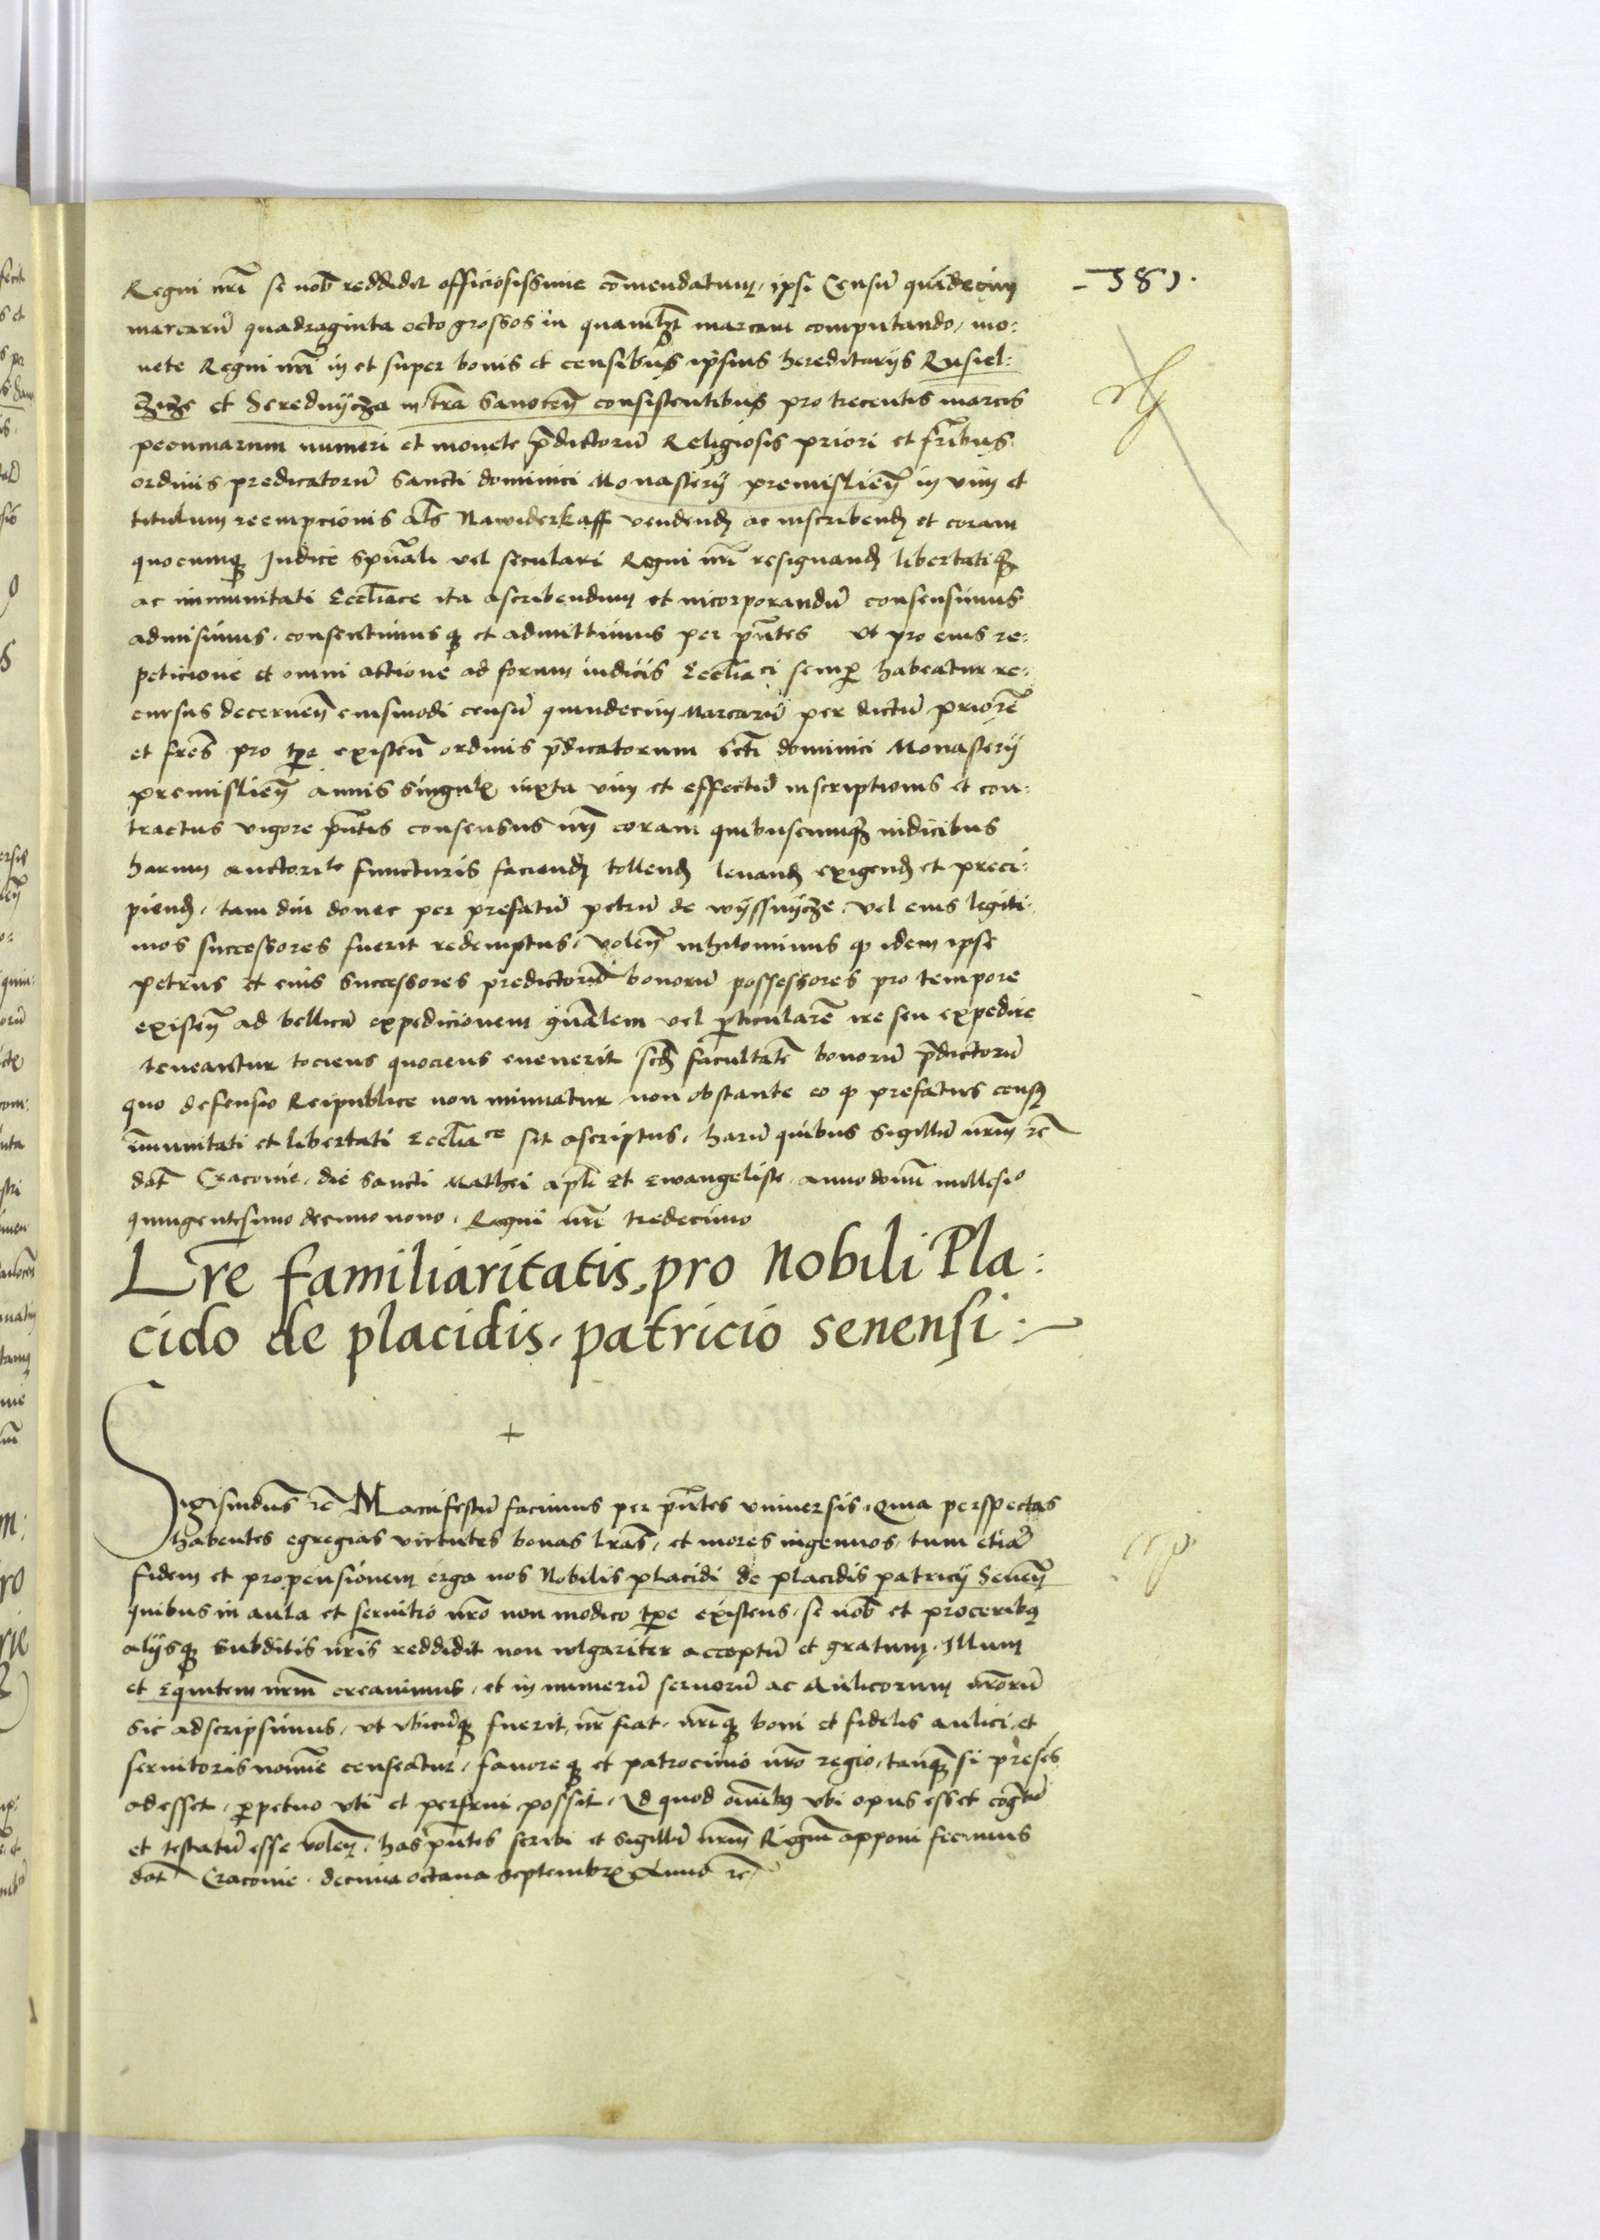 381.
Regni nrī se nob̄ reddidit officiosissime cōmendatum, ipsi Censū quīdecim
marcarū quadraginta octo grossos in quamlȝ marcam computando, mo:
nete Regni nrī in et super bonis et censibus ipsius hereditarijs Rusiel:
et Serednycza in tr̄a Sanoceñ consistentibus pro trecentis marcis
pecuniarum numeri et monete p̄dictorū Religiosis priori et fr̄ibus
ordinis predicatorū Sancti dominici Monasterij premislieñ in vim et
titulum reempcionis al̄s Nawiderkaff vendend̄ ac inscribend̄ et coram
quocumqȝ Judice spūali vel seculari Regni nrī resignand̄ libertatiqȝ
ac immunitati Eccl̄iace ita ascribendum et incorporandū consensimus
admisimus, consentimusqȝ et admittimus per pn̄tes vt pro eius re:
peticione et omni actione ad forum iudicis Eccl̄iaci semp̄ habeatur re:
cursus decerneñ eiusmodi censū quindecim Marcarū per dictū priorē
et fr̄es pro tp̄e existeñ ordinis p̄dicatorum scti dominici Monasterij
premislieñ annis singulȝ iuxta vim et effectū inscriptionis et con:
tractus vigore pn̄tis consensus nrī coram quibuscumqȝ iudicibus
harum auctoritᵉ functuris faciend̄ tollend̄ levand̄ exigend̄ et preci:
piend̄, tam diu donec per prefatū petrū de wyssnycze, vel eius legiti:
mos successores fuerit redemptus, voleñ nihilominus qȝ idem ipse
petrus et eius successores predictorū bonorū possessores pro tempore
existeñ ad bellicā expedicionem gn̄alem vel p̄ticularē ire seu expedire
teneantur tociens quociens evenerit scd̄ facultatē bonorū p̄dictorū
quo defensio Reipublice non minuatur non obstante eo qȝ prefatus census
īmunitati et libertati Eccl̄iace sit ascriptus, harū quibus sigillū nrm̄ rē
dat̄ Cracovie, die Sancti Mathei apl̄i Et Ewangeliste, anno domī millesiᵒ
quingentesimo decimo nono, Regni nrī tredecimo
Lr̄e familiaritatis, pro Nobili Pla:
cido de placidis, patricio senensi:
Sigismūdus rē Manifestū facimus per pn̄tes vniversis, Quia perspectas
habentes egregias virtutes bonas lrās, et mores ingenuos, tum etiā
fidem et propensionem erga nos Nobilis placidi de placidis patricij Seneñ
quibus in aula et servitio nrō non modico tp̄e existens, se nob̄ et proceribȝ
alijsqȝ subditis nrīs reddidit non wlgariter acceptū et gratum, Illum
et Equitem nrm̄ creavimus, et in numerū servorū ac Aulicorum nrōrū
sic adscripsimus, vt vbicūqȝ fuerit, nr̄ fiat, nrīqȝ boni et fidelis aulici et
servitoris nomīe censeatur, favoreqȝ et patrocinio nrō regio, tanqȝ si presēs
adesset, p̄petuo vti et perfrui possit, Id quod oīnibȝ vbi opus esset cogn̄tū
et testatū esse voleñ, has pn̄tes scribi et sigillū nrm̄ Regiū apponi fecimus
dat̄ Cracovie, decima octava Septembrȝ Anno rē